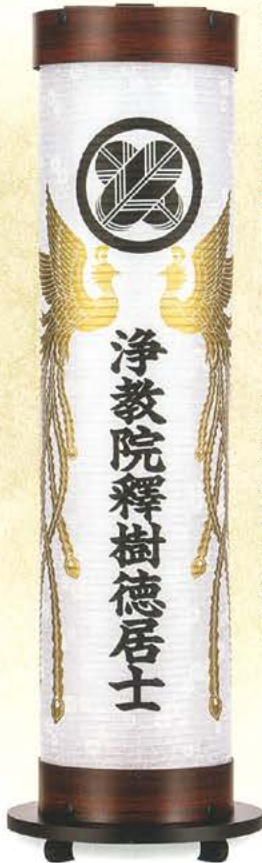 浄教院釋樹徳居士